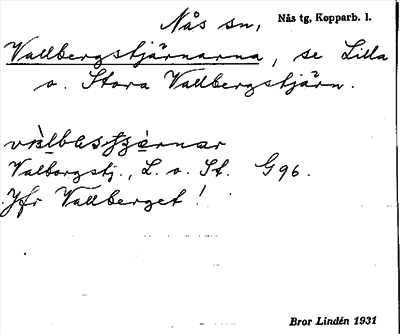 Nås sn, Nås tg, Kopparb. l.
Vallbergstjärnarna, se Lilla
o. Stora Vallbergstjärn.
Valborgstj., L. o. St. G 96.
Jfr Vallberget!
Bror Lindén 1931